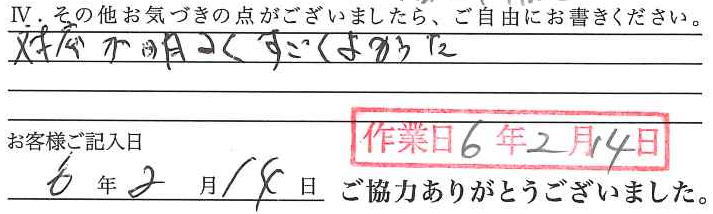 Ⅳ．その他お気づきの点がございましたら、ご自由にお書きください。
対応が明るくすごくよかった
作業日6年2月14日
お客様ご記入日
6年2月14日
ご協力ありがとうございました。